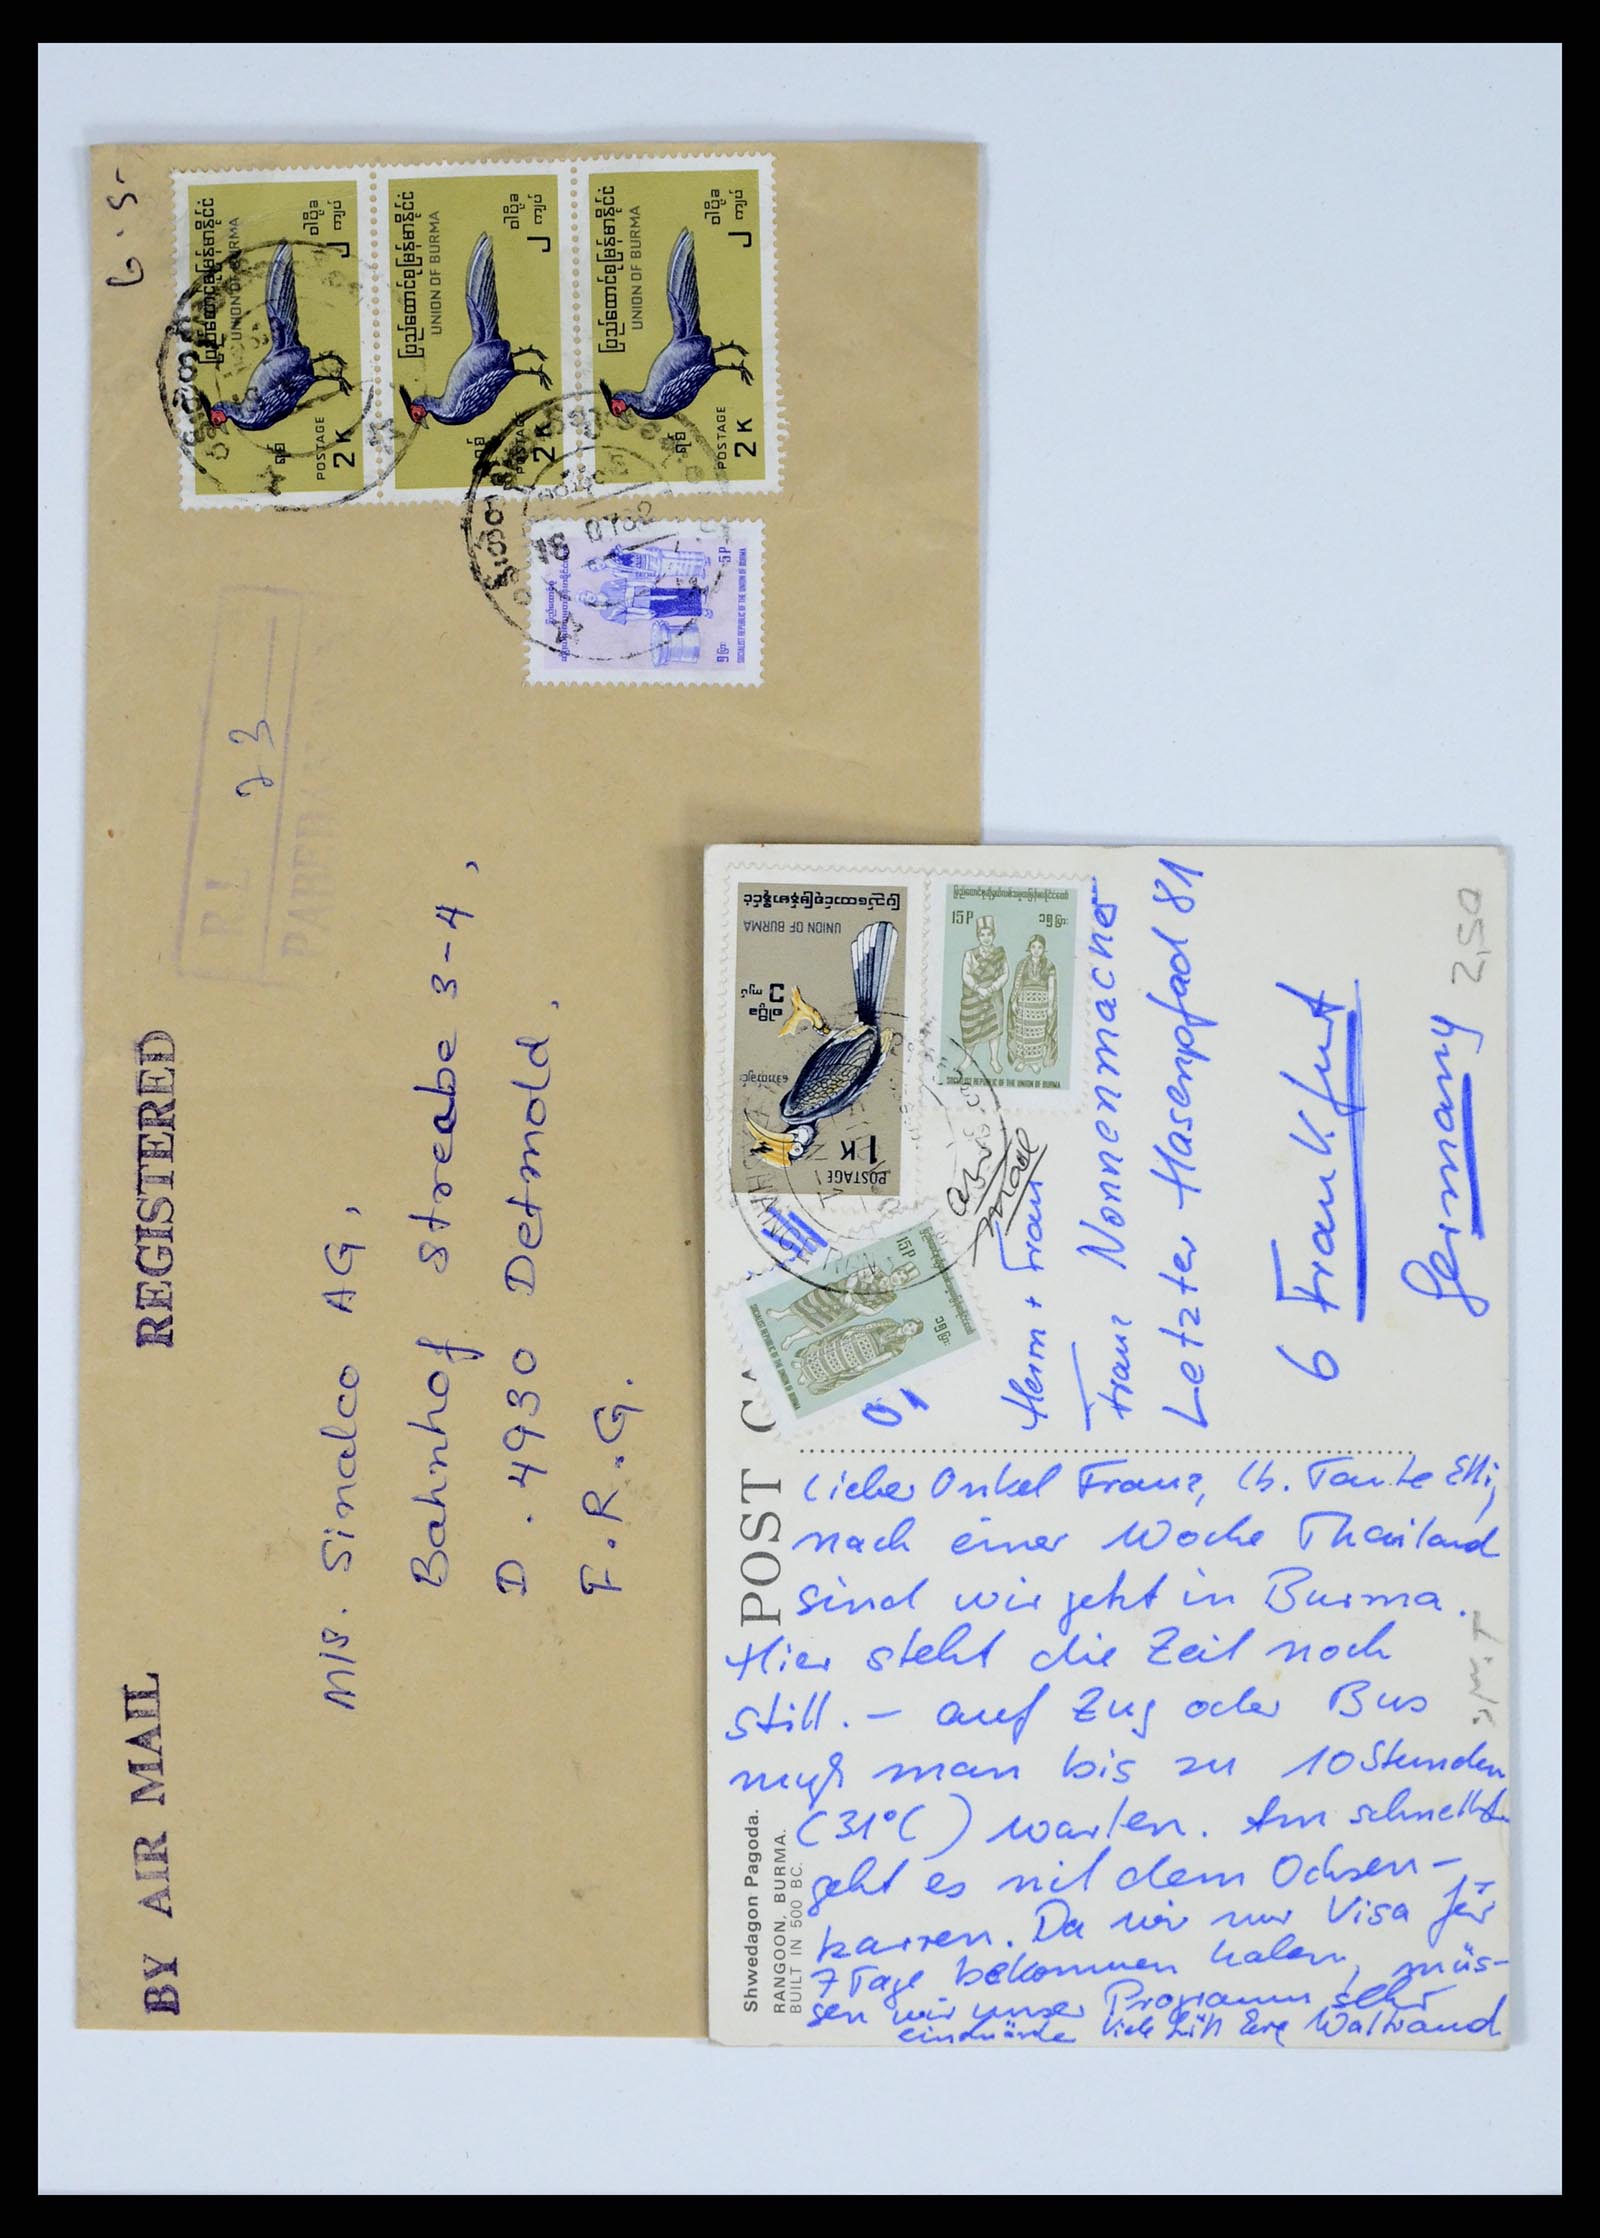 6.5-
ပြည်ထောင်စုမြန်မာနိုင်ငံ
UNION OF BURMA
၂ ကျပ်
ရစ်
POSTAGE
2 K
ပြည်ထောင်စုမြန်မာနိုင်ငံ
UNION OF BURMA
၂ ကျပ်
ရစ်
POSTAGE
2 K
ပြည်ထောင်စုမြန်မာနိုင်ငံ
UNION OF BURMA
၂ ကျပ်
ရစ်
POSTAGE
2 K
5P
၅ ပြား
SOCIALIST REPUBLIC OF THE UNION OF BURMA
R.L.
23
BY AIR MAIL REGISTERED
M/S. Sinalco AG,
Bahnhof Streabe 3-4,
D. 4930 Detmold.
F.R.G.
ပြည်ထောင်စုမြန်မာနိုင်ငံ
UNION OF BURMA
၁ ကျပ်
1 K
POSTAGE
15P
၁၅ ပြား
SOCIALIST REPUBLIC OF THE UNION OF BURMA
15P
၁၅ ပြား
SOCIALIST REPUBLIC OF THE UNION OF BURMA
POST CA
Herrn + Frau
Franz Nonnenmacher
Letzter Hasenpfad 81
6 Frankfurt
Germany
2,50
Lieber Onkel Franz, lb. Tante Elli,
nach einer Woche Thailand
sind wir jetzt in Burma.
Hier steht die Zeit noch
still. - auf Zug oder Bus
muß man bis zu 10 Stunden
(31°C) warten. Am schnellst
geht es mit dem Ochsen-
karren. Da wir nur Visa für
7 Tage bekommen haben, müs-
sen wir unser Programm sehr
Viele Waltraud
Shwedagon Pagoda.
RANGOON, BURMA.
BUILT IN 500 BC.